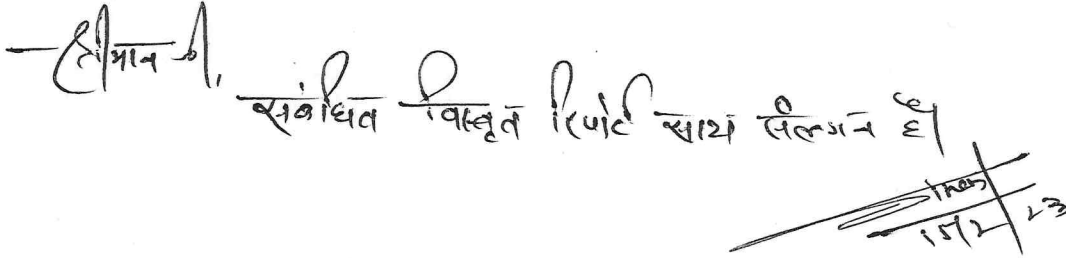 श्रीमान जी,
संबंधित विस्तृत रिपोर्ट साथ संलग्न है।
15/2/23